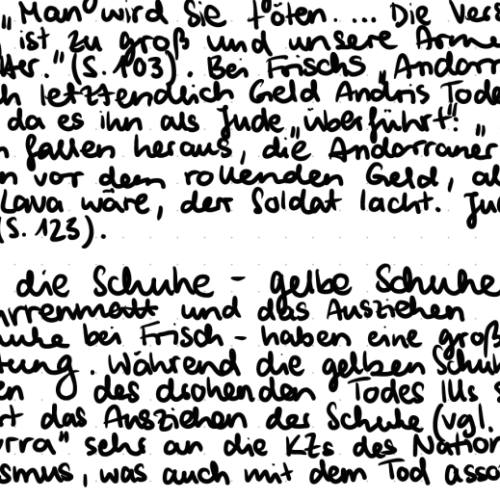 „Man wird Sie töten. ... Die Vers
ist zu groß und unsere Arm
ter." (S. 103). Bei Frischs „Andorr
h letztendlich Geld Andris Tode
da es ihn als Jude „überführt". "
n fallen heraus, die Andorraner
n vor dem rollenden Geld, al
Lava wäre, der Soldat lacht. Ju
(S. 123).
die Schuhe - gelbe Schuhe
rrenmatt und das Ausziehen
uhe bei Frisch - haben eine groß
tung. Während die gelben Schuh
en des drohenden Todes Ills s
rt das Ausziehen der Schuhe (vgl.
orra" sehr an die KZs des Nation
smus, was auch mit dem Tod asso